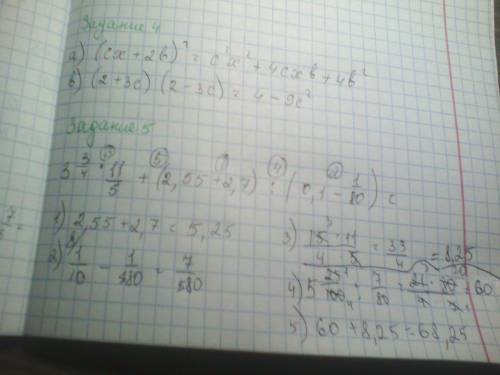 Задание 4
а) (cx + 2b)² = c²x² + 4cxb + 4b²
б) (2 + 3c) (2 - 3c) = 4 - 9c²
Задание 5
3 3/4 · 11/5 + (2,55 + 2,7) : (0,1 - 1/80) =
1) 2,55 + 2,7 = 5,25
2) 1/10 - 1/80 = 7/80
3) 15 · 11 / 4 · 5 = 33/4 = 8,25
4) 5 25/100 : 7/80 = = 60
5) 60 + 8,25 = 68,25